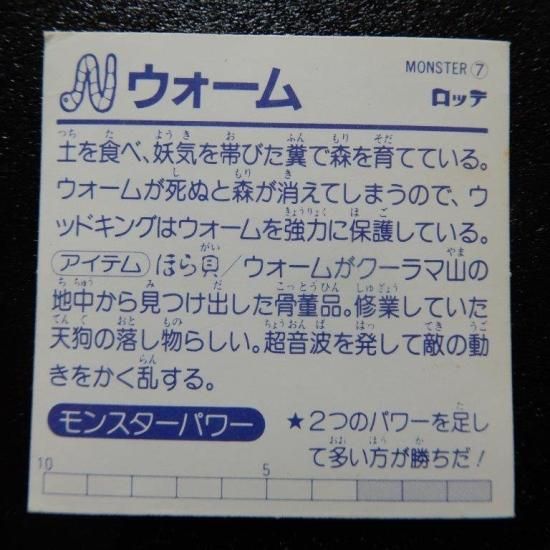 ウォーム
MONSTER⑦
ロッテ
土を食べ、妖気を帯びた糞で森を育てている。
ウォームが死ぬと森が消えてしまうので、ウ
ッドキングはウォームを強力に保護している。
アイテム ほら貝/ウォームがクーラマ山の
地中から見つけ出した骨董品。修業していた
天狗の落し物らしい。超音波を発して敵の動
きをかく乱する。
モンスターパワー
★2つのパワーを足し
て多い方が勝ちだ!
10 5